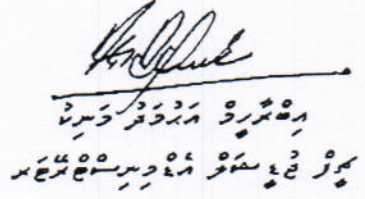 އިބްރާހީމް އަޙުމަދު މަނިކު
ޗީފް ޖުޑީޝަލް އެޑްމިނިސްޓްރޭޓަރ